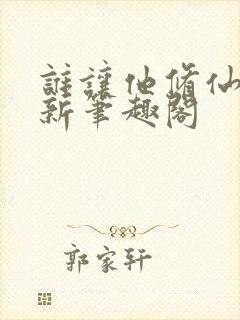 誰讓他修仙
新筆趣閣
郭家軒